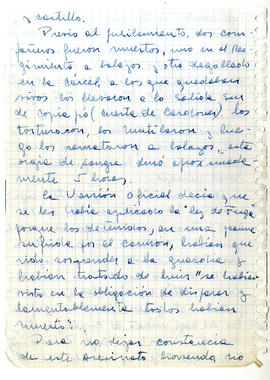 y castillo.
Previo al fusilamiento, dos com
pañeros fueron muertos, uno en el Re
gimiento a balazos y otro degollado
en la cárcel, a los que quedaban
vivos los llevaron a la Salida Sur
de Copiapó (Cuesta de Cardones) los
torturaron, los mutilaron y lue-
go los remataron a balazos, esta
orgía de sangre duró aproximada-
mente 5 horas.
La Versión Oficial decía que
se les había aplicado la "ley de Fuga"
porque los detenidos, en una panne
sufrida por el camion, habían que
rido sorprender a la guardia y
habían tratado de huir "se habían
visto en la obligación de disparar y
lamentablemente todos habían
muerto".
Para no dejar constancia
de este asesinato horrendo, no